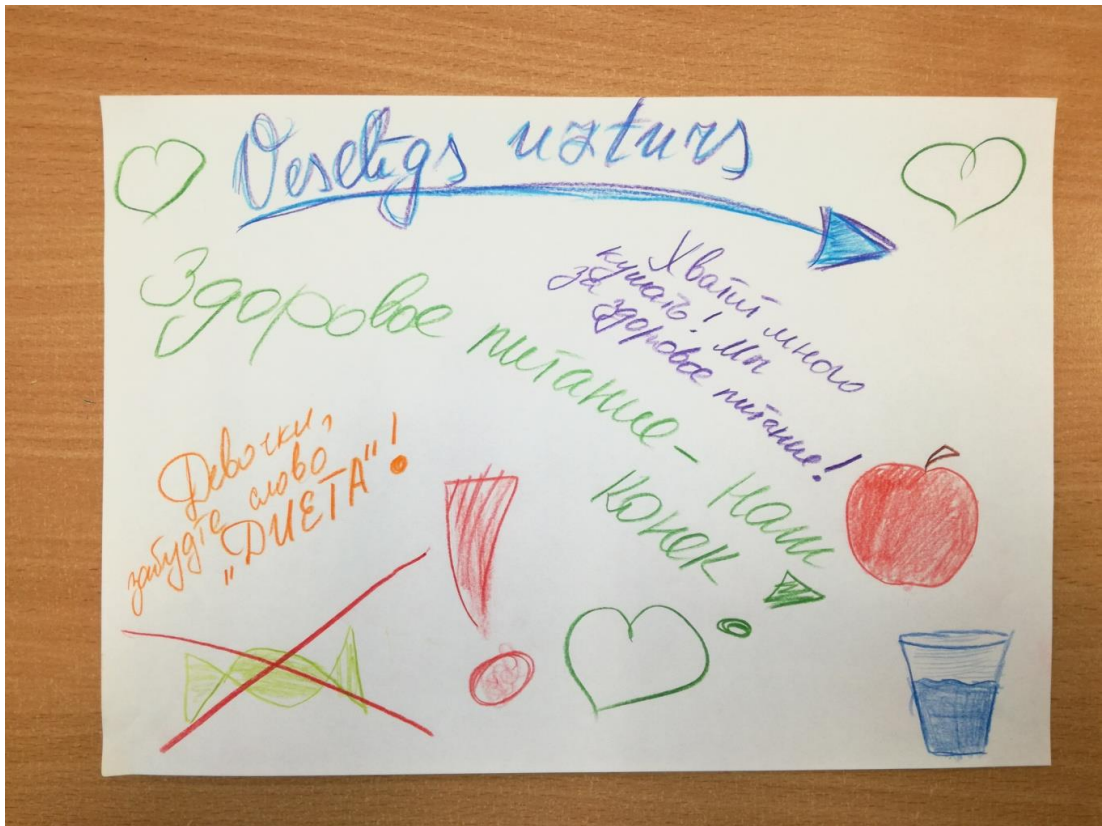 Veselīgs uzturs
Здоровое питание – наш
конек!
Хватит много
кушать! Мы
за здоровое питание!
Девочки,
забудте слово
"ДИЕТА"!